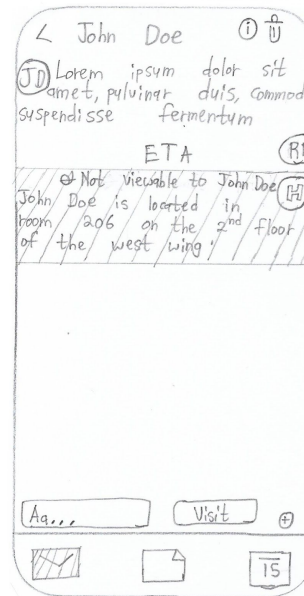 John Doe
JD Lorem ipsum dolor sit
amet, pulvinar duis, commod
suspendisse fermentum
ETA
Not viewable to John Doe H
John Doe is located in
room 206 on the 2nd floor
of the west wing.
Aa... Visit
15